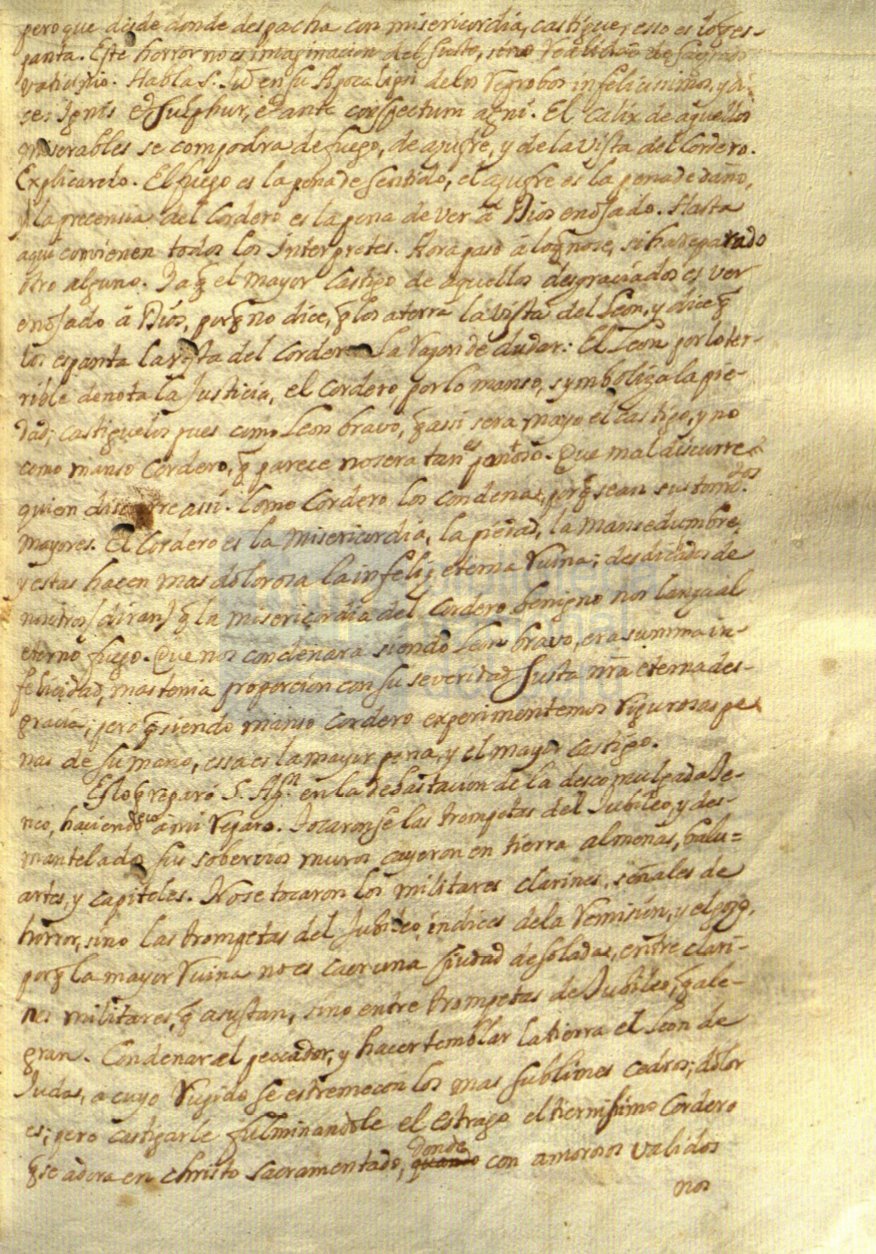 pero que desde donde despacha con misericordia, castigue, esso es lo q es-
panta. Este horror no es imaginacion del susto, sino realidad de sagrado
vaticinio. Habla S. Juº en su Apocalipsi delos reprobos infelicissimos, y di-
ce: Ignis et Sulphur, et ante conspectum agni. El caliz de aquellos
miserables se compodra de fuego, de azufre, y de la vista del Cordero.
Explicaredo. El fuego es la pena de sentido, el azufre es la pena de daño,
y la precensia del Cordero es la pena de ver a Dios enojado. Hasta
aqui convienen todos los Interpretes. Aora paso a lo q no se, si ha reparado
otro alguno. Ya q el mayor Castigo de aquellos desgraciados es ver
enojado â Dios, porq no dice, q los aterra la vista del Leon, y dice q
los espanta la vista del Cordero. La razon de dudar: El Leon por lo ter-
rible denota la Justicia, el cordero, por lo manso, symboliza la pie-
dad; castiguelos pues como Leon bravo, q assi sera mayor el castigo, y no
como manso Cordero, q parece no sera tan espantoso. Que mal discurre
quien discurre assi. Como Cordero los condena, porq sean sus tormtos
mayores. El Cordero es la Misericordia, la piedad, la mansedumbre,
y estas hacen mas dolorosa la infeliz eterna ruina; desdicados de
nosotros (diran) q la misericordia del Cordero benigno nos lanza al
eterno fuego. Que nos condenara siendo Leon bravo, era summa in-
felicidad, mas tenia proporcion con su severidad justa nrâ eterna des-
gracia; pero q siendo manso cordero experimentemos rigurosas pe-
nas de su mano, essa es la mayor pena, y el mayor castigo.
Esto q reparó S. Agn. en la debastacion de la descomulgada Je-
rico, haciendo eco â mi reparo. Tocaronse las trompetas del Jubileo, y des-
mantelados sus sobervios muros cayeron en tierra almenas, balu=
artes, y capiteles. No se tocaron los militares clarines, señales de
horror, sino las trompetas del Jubileo indices de la remisión, y el gozo,
porq la mayor ruina no es caer una Ciudad desolada, entre clari-
nes militares, q asustan, sino entre trompetas de Jubileo, q ale-
gran. Condenar al pecador, y hacer temblar la tierra el Leon de
Judas, a cuyo rujido se estremecen los mas sublimes cedros; dolor
es; pero castigarle fulminandole el estrago el tiernissimo Cordero
q se adora en christo sacramentado, donde quando con amorosos validos
nos
biblioteca
nacional
del perú